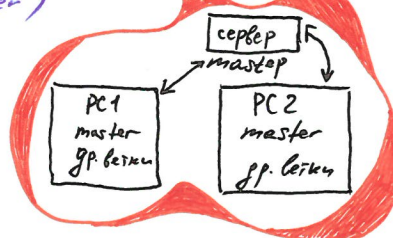 сервер
master
PC1
master
др. ветки
PC2
master
др. ветки